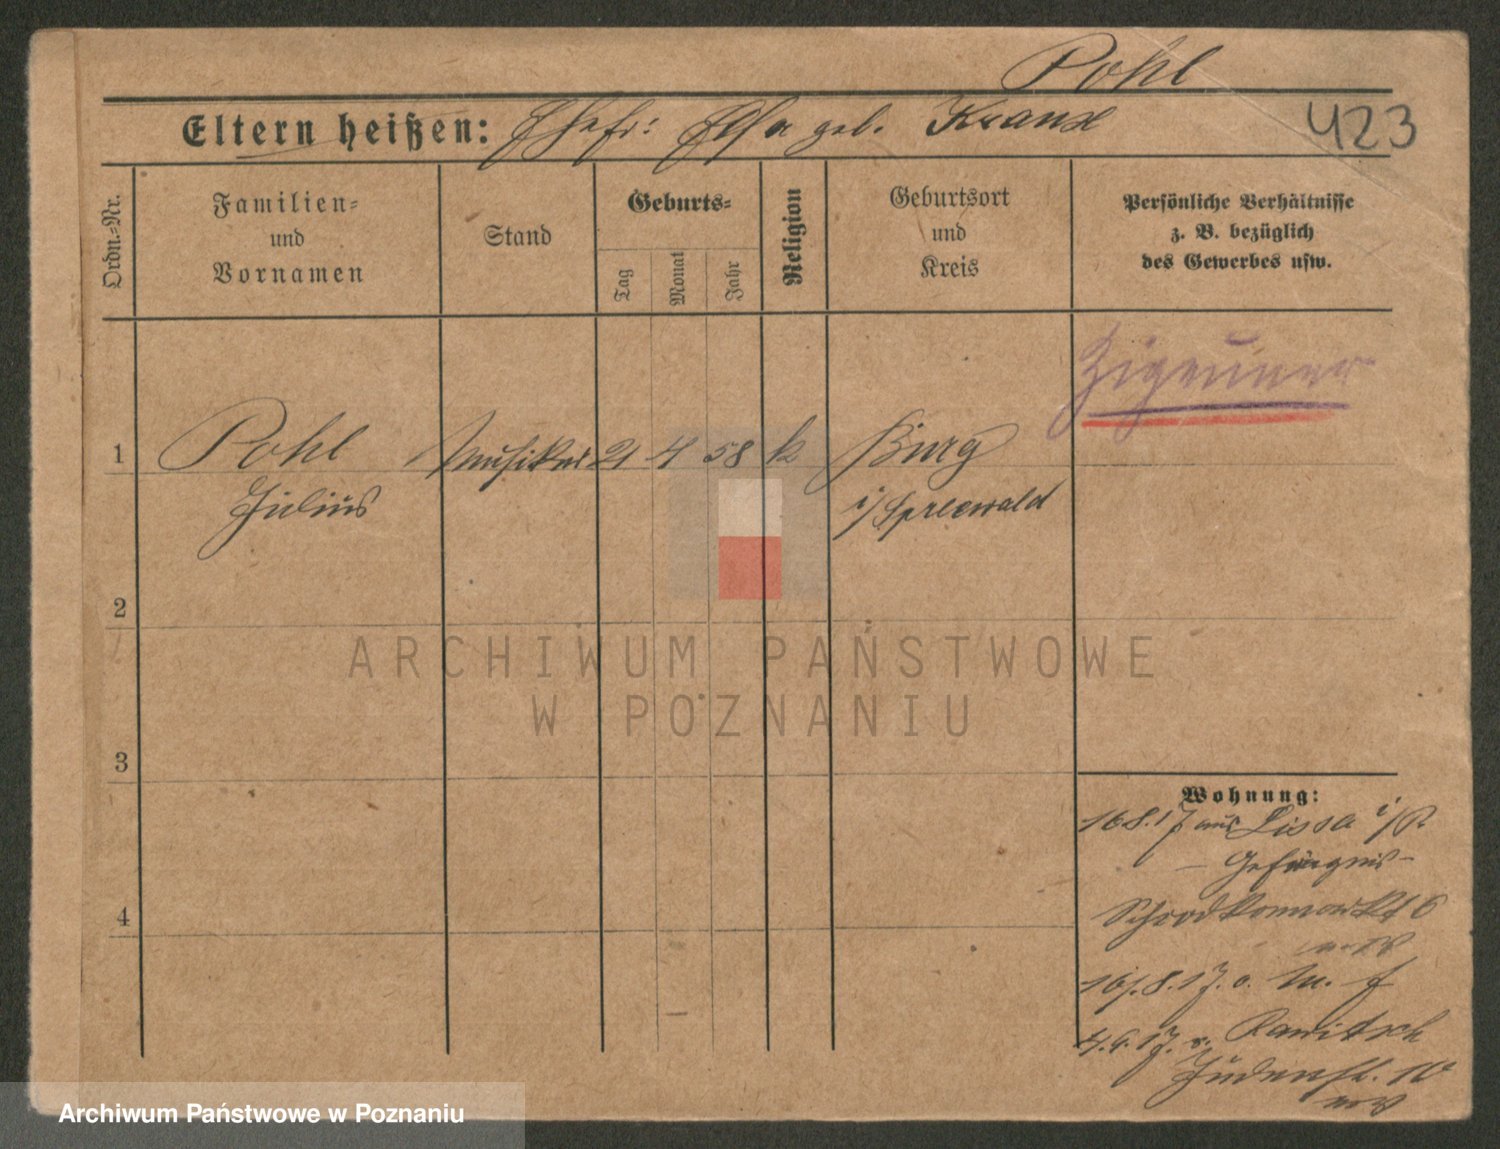 Pohl
423
Eltern heißen: Ehefr: Elsa geb. Kranz
Ordn.-Nr.
Familien-
und
Vornamen
Stand
Geburts-
Tag
Monat
Jahr
Religion
Geburtsort
und
Kreis
Persönliche Verhältnisse
z. B. bezüglich
des Gewerbes usw.
Zigeuner
1
Pohl
Julius
Musiker
21
4
58
k
Burg
i/Spreewald
2
3
4
Wohnung:
16.8.17 aus Lissa i/P.
– Gefängnis –
6
16/8.17. v.
17. Rawitsch
Judenstr. 10
ARCHIWUM PAŃSTWOWE
W POZNANIU
Archiwum Państwowe w Poznaniu